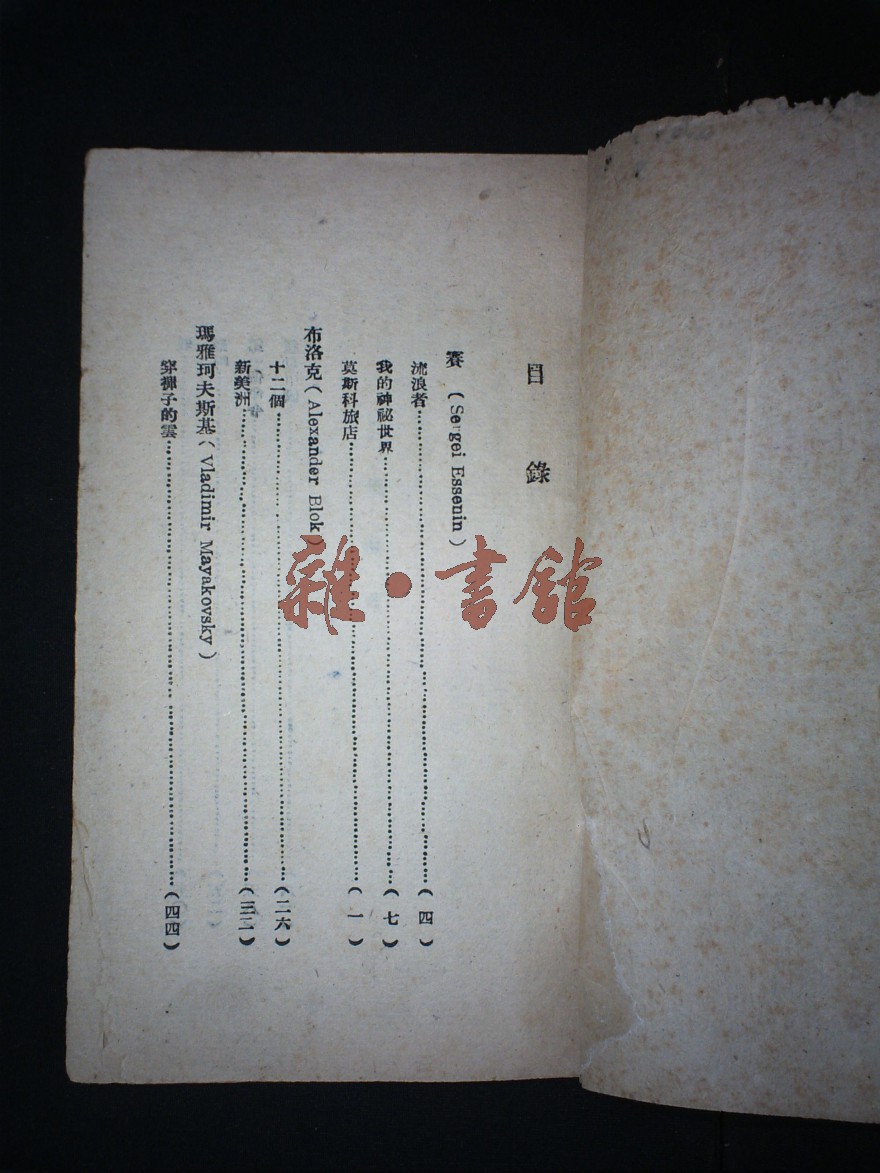 目錄
賽 (Sergei Essenin)
流浪者……(四)
我的神祕世界……(七)
莫斯科旅店……(一)
布洛克(Alexander Blok)
十二個……(二六)
新美洲……
瑪雅珂夫斯基(Vladimir Mayakovsky)
穿褲子的雲……(四四)
雜·書館